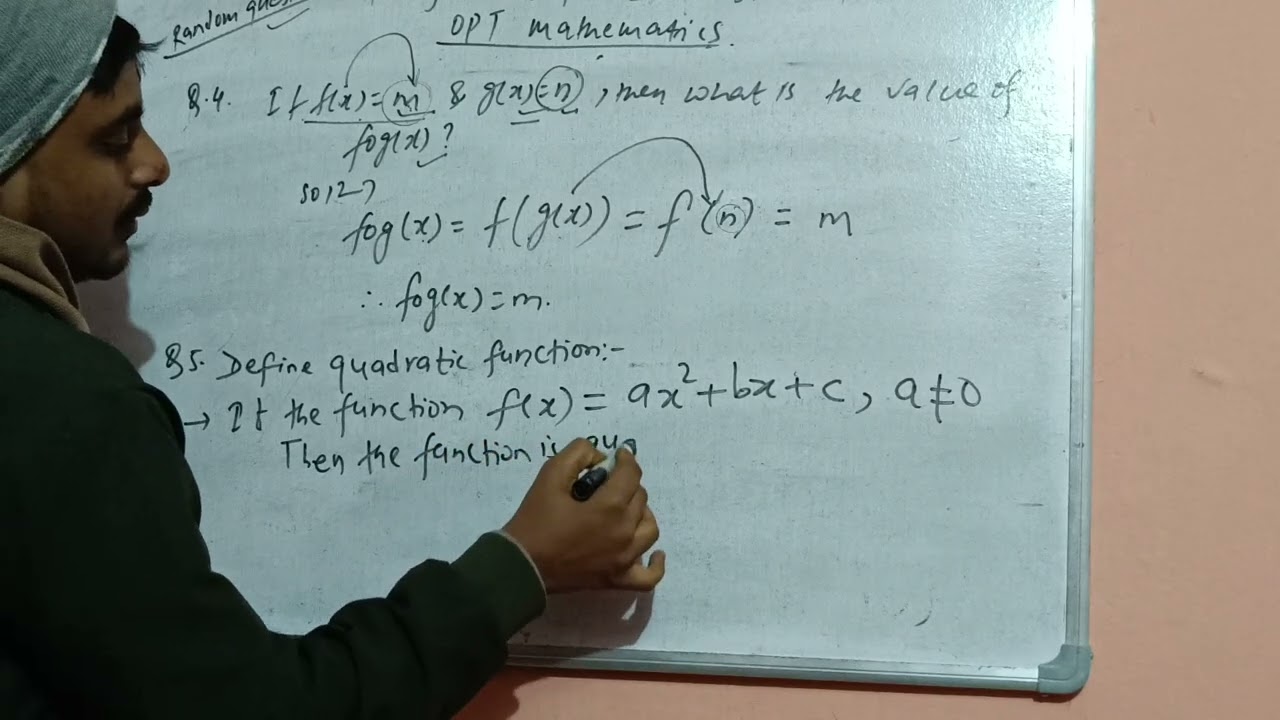 Random
OPT mathematics.
Q.4. If f(x)=m & g(x)=n, then what is the value of
fog(x)?
fog(x) = f(g(x)) = f(n) = m
∴ fog(x)=m.
Q5. Define quadratic function:-
→ If the function f(x) = ax²+bx+c, a≠0
Then the function is qua